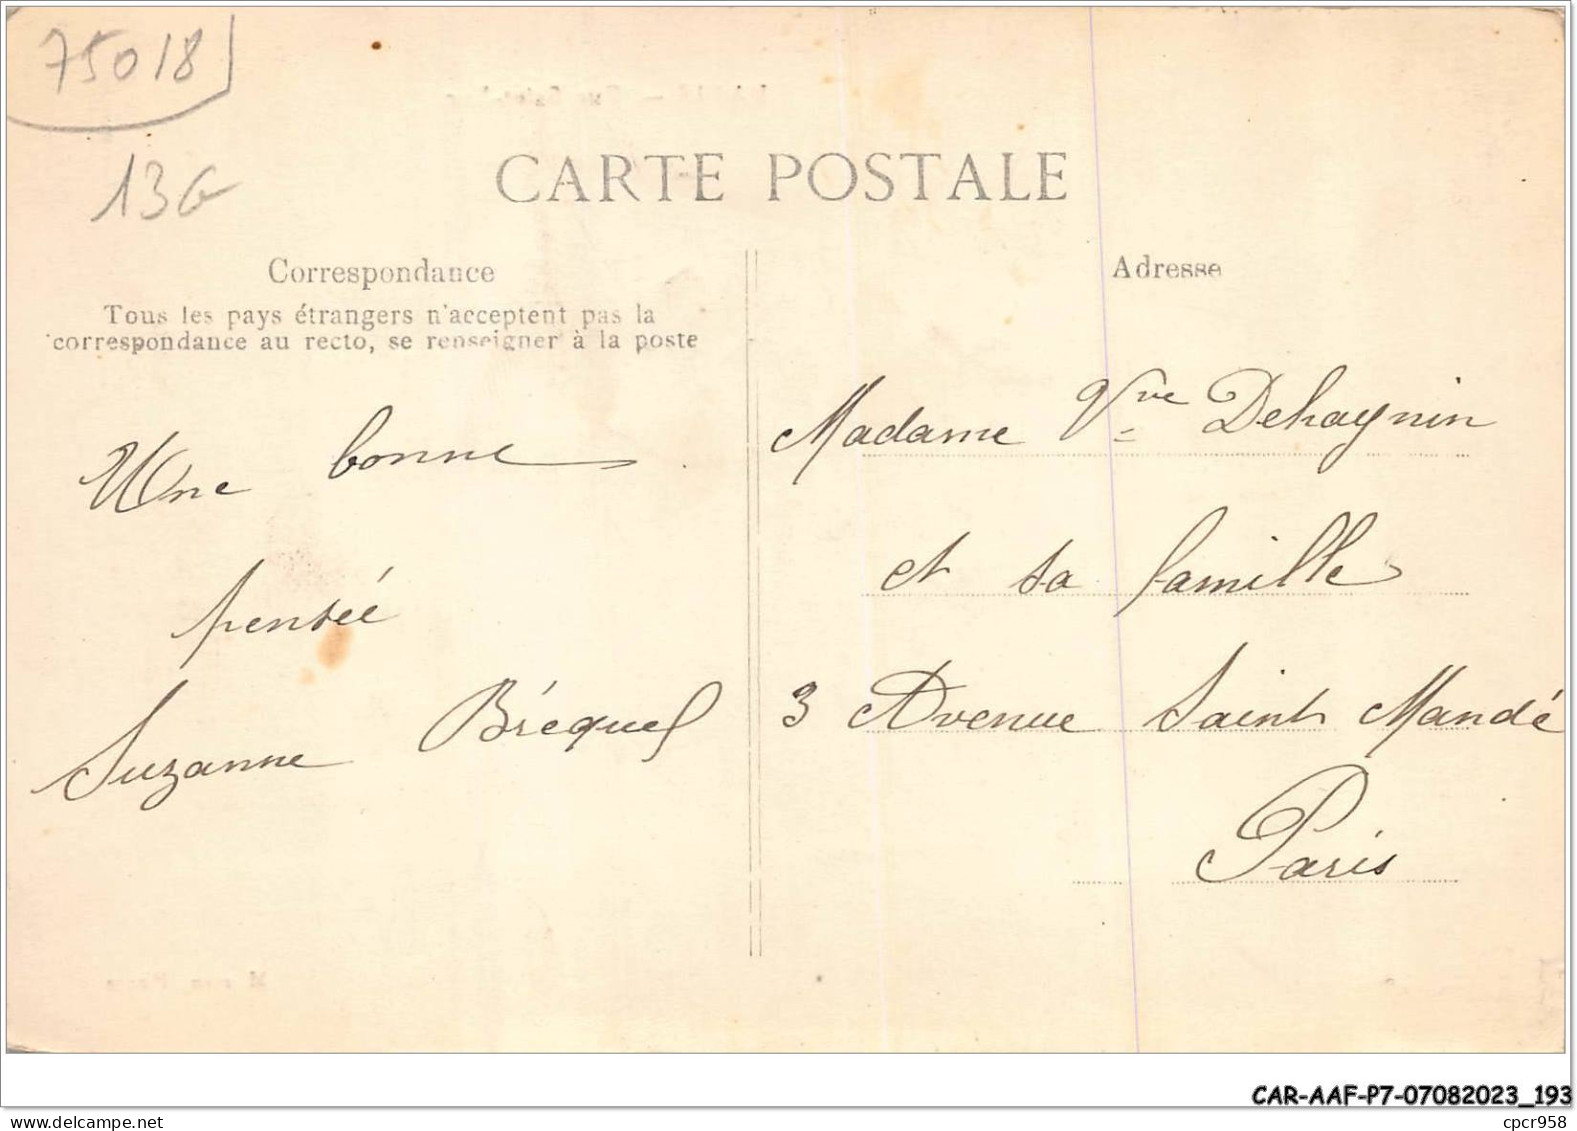 75018
13G
CARTE POSTALE
Correspondance
Tous les pays étrangers n'acceptent pas la
correspondance au recto, se renseigner à la poste
Une bonne
pensée
Suzanne Bréquel
Adresse
Madame Vve Dehaynin
et sa famille
3 Avenue Saint Mandé
Paris
CAR-AAF-P7-07082023_193
cpcr958